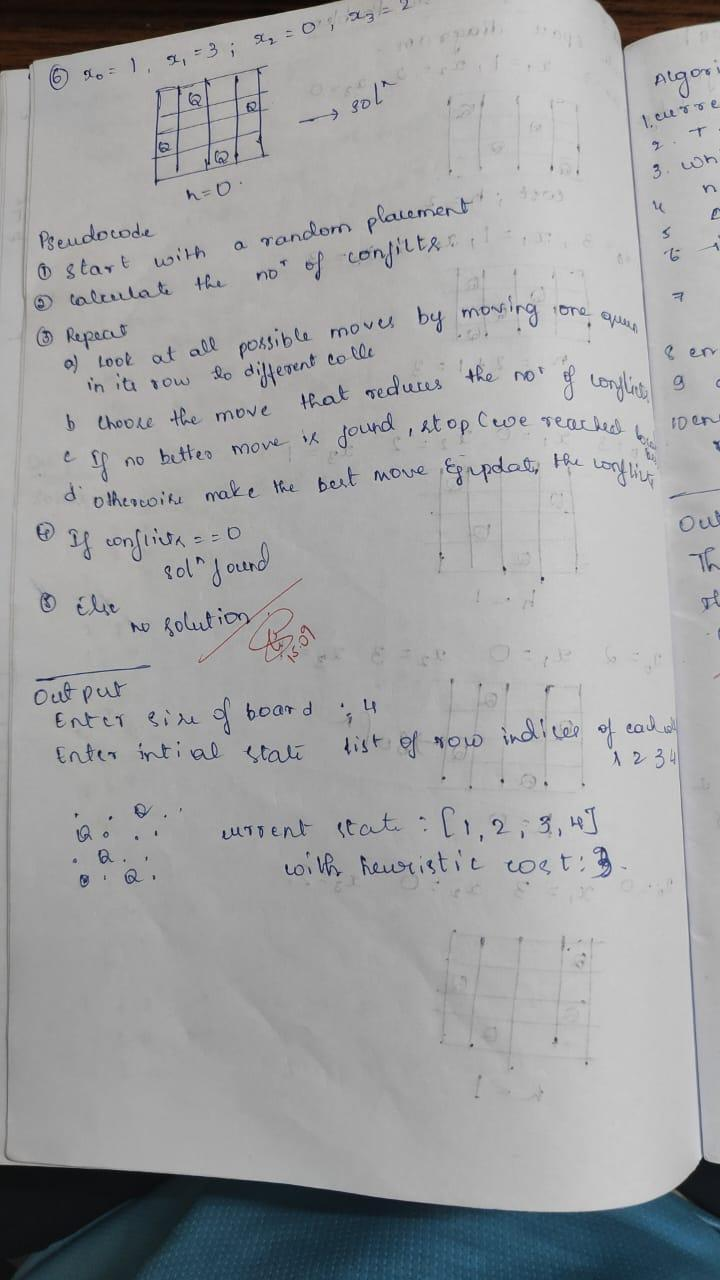 ⑥ x₀ = 1, x₁ = 3 ; x₂ = 0 ; x₃ = 2
Q
Q
Q
Q
→ solⁿ
h=0.
Pseudocode
① start with a random placement
② calculate the noʳ of confilts
③ Repeat
a) Look at all possible moves by moving one queen
in its row to different
b choose the move that reduces the noʳ of conflicts
c If no better move is found, stop (we reached
d. otherwise make the best move & update the conflict
④ If conflicts == 0
solⁿ found
⑤ Else
no solution
15.09
Output
Enter size of board : 4
Enter intial state list of row indices of each
1 2 3 4
. . Q . .
Q . . .
. Q . .
. Q .
current state : [1, 2, 3, 4]
with heuristic cost: 3.
Algori
1. curre
2.
3. wh
4 n
5
6
7
8 en
9
10 en
Out
Th